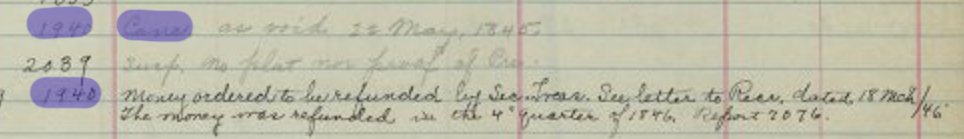 1940 Cancd as void 12 May, 1845
2039 Susp. no plat nor proof of Cre.
1940 Money ordered to be refunded by Sec. Treas. See letter to Recr. dated, 18 Mch/46
The money was refunded in the 4" quarter of 1846. Report 7076.